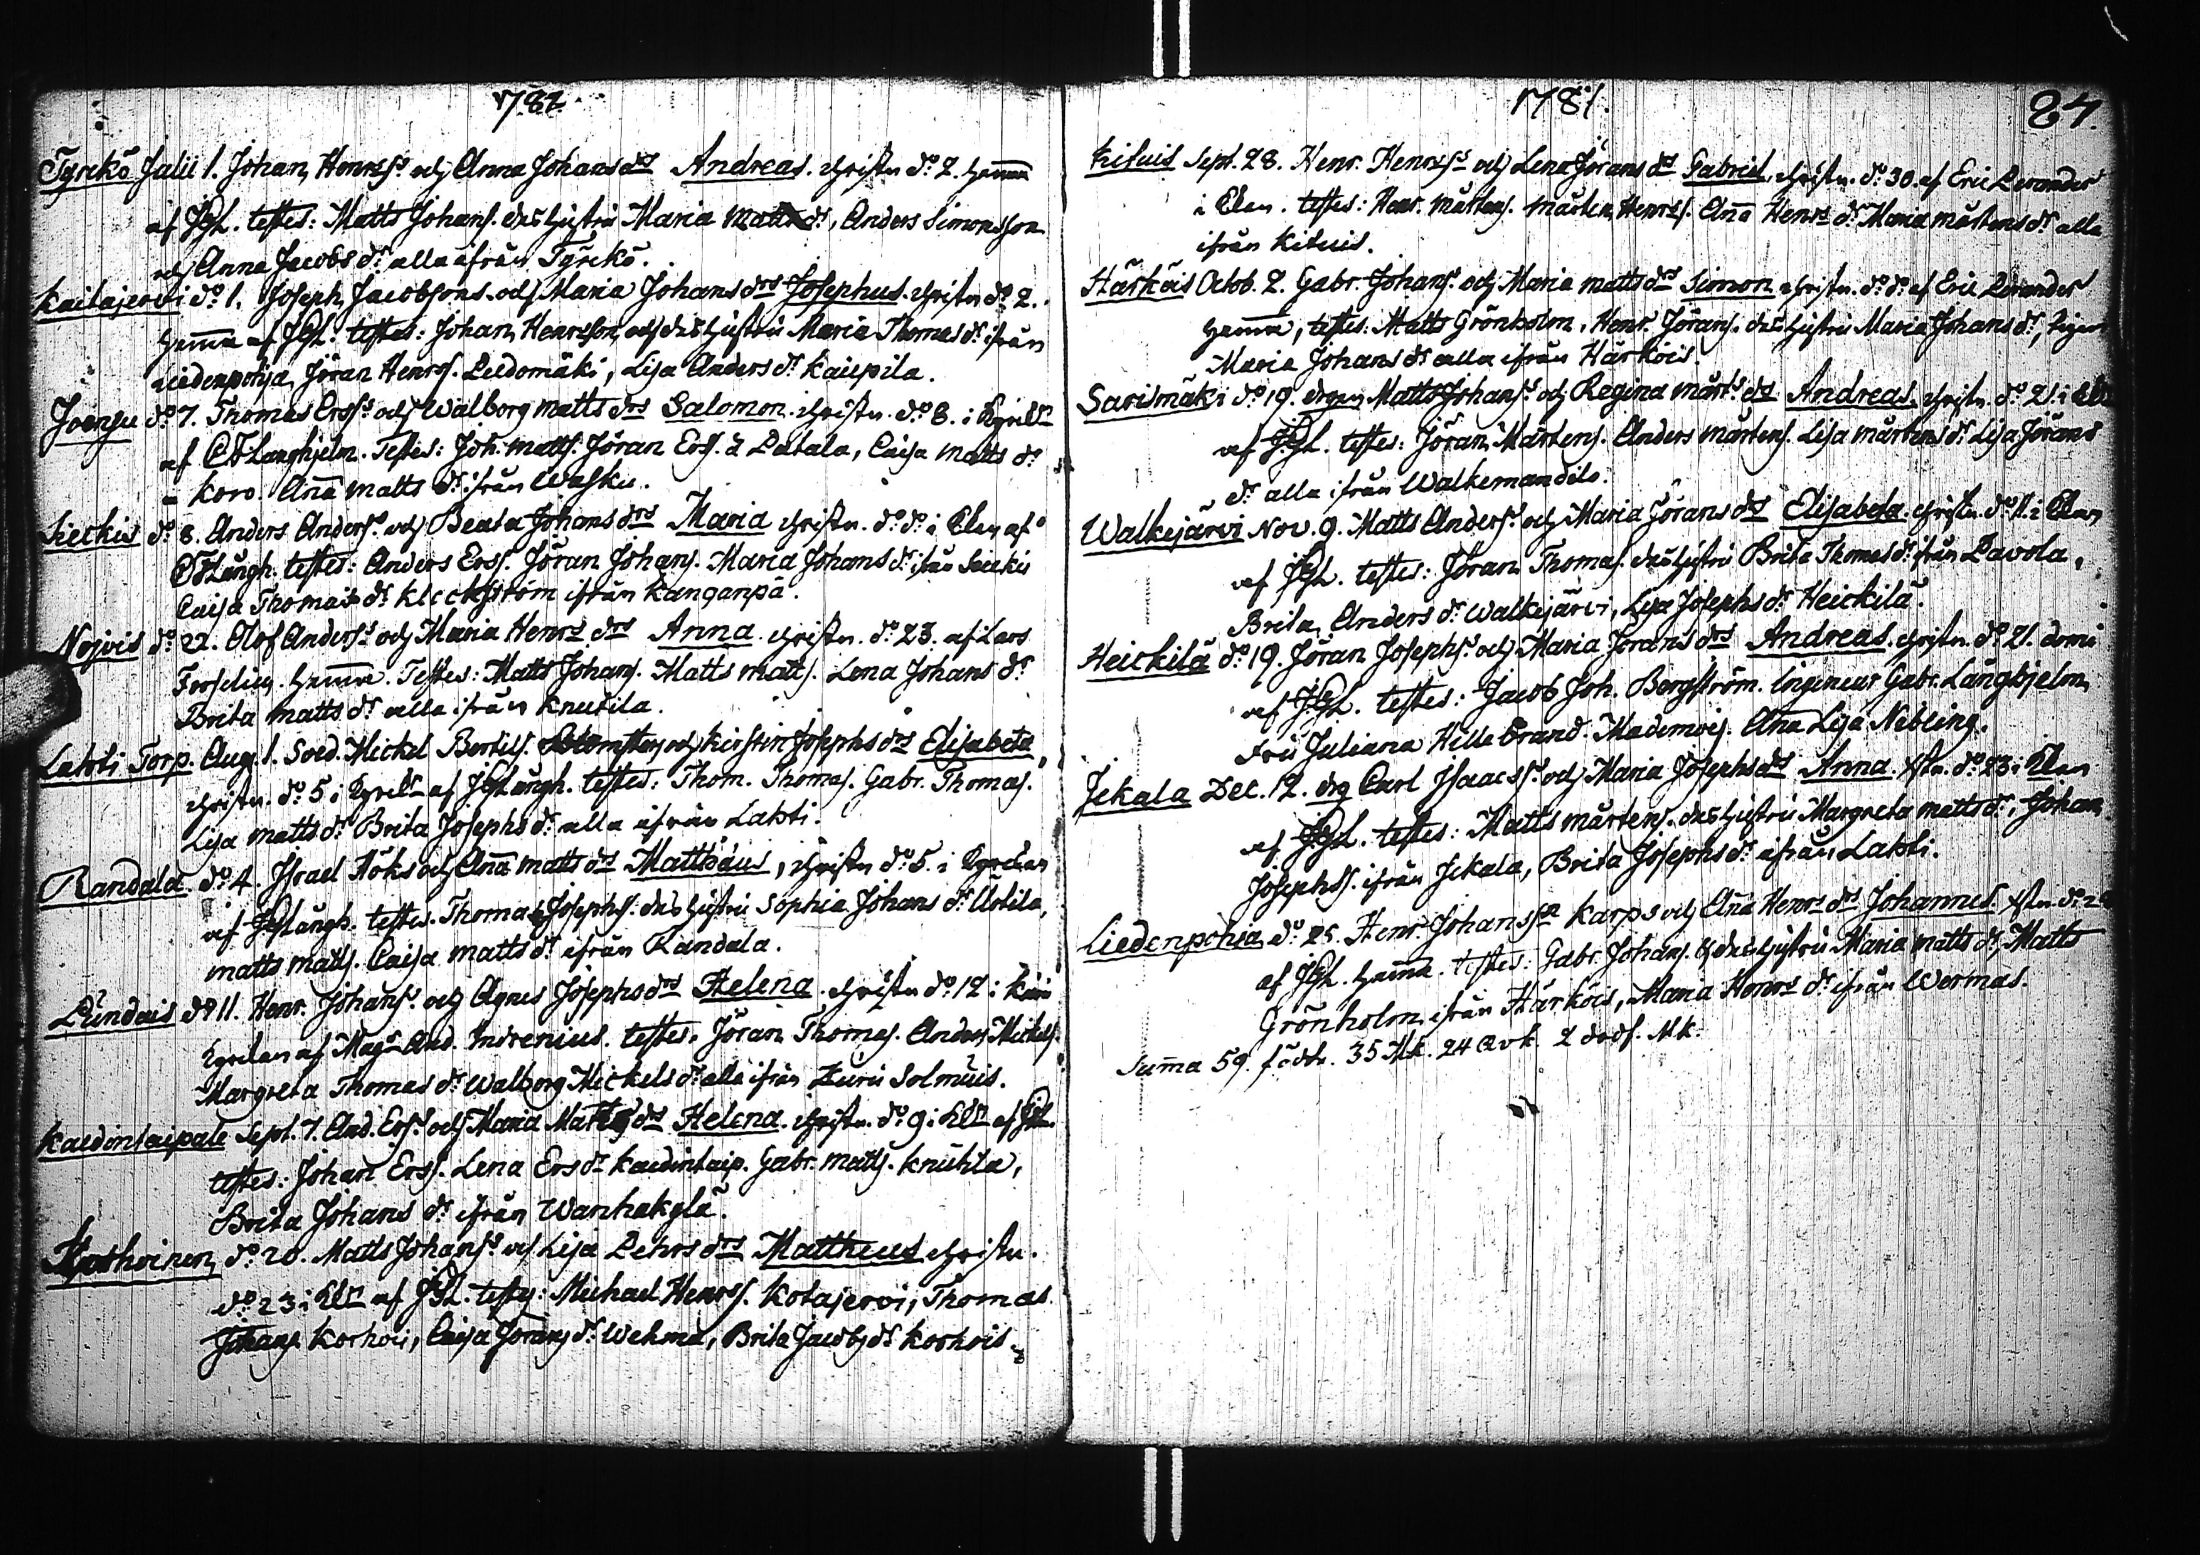 1781.
Tyrckö Julii 1. Johan Henrss. och Anna Johans dr Andreas. christn. do 2. hemma
af JGL. testes: Matts Johans. des hustru Maria Matts dr, Anders Simonsson
och Anna Jacobs dr alla ifrån Tyrckö.
Kaitajervi do 1. Joseph Jacobsons och Maria Johans drs Josephus. christn do 2.
hemma af JGL. testes: Johan Henrsson och des hustru Maria Thomas dr ifrån
Liedenpohja, Jöran Henrss. Leedomäki, Lisa Anders dr Kaiepila.
Joensu do 7. Thomas Erss. och Walborg Matts drs Salomon. christn. do 8. i
af Langhjelm. Testes: Joh. Matts. Jöran Ers. ä Latala, Caisa Matts dr
Koro. Anna Matts dr ifrån Wasku.
Lieckis do 8. Anders Anderss. och Beata Johans drs Maria christn. do do i Elen af
Långh. testes: Anders Erss. Jöran Johans. Maria Johans dr ifrån
Caisa Thomas dr Kleckström ifrån Kanganpä.
Nojvis do 22. Olof Anderss. och Maria Henrs drs Anna. christn. do 23. af Lars
Forselius. hemma. Testes: Matts Johans. Matts Matts. Lena Johans dr
Brita Matts dr alla ifrån Knutila.
Lahti Torp. Aug. 1. Sold. Mickel Bertils. och Kirstin Josephs drs Elisabeta,
christn. do 5 i af JGLångh. testes: Thom. Thomas. Gabr. Thomas.
Lisa Matts dr Brita Josephs dr alla ifrån Lahti.
Randala do 4. Israel Höks och Anna Matts drs Matthäus, christn do 5. i
af JGLångh. testes. Thomas Josephs. des hustru Sophia Johans dr Uotila,
Matts Matts. Caisa Matts dr ifrån Randala.
do 11. Henr. Johanss. och Agnes Josephs drs Helena. christn do 12 i
af Mag. And. Indrenius. testes. Jöran Thomas. Anders Mickels.
Margreta Thomas dr Walborg Mickels dr alla ifrån Solmuis.
Kaidontaipale Sept. 7. And. Erss. och Maria Matts drs Helena. christn. do 9 i Eln af JGL.
testes: Johan Erss. Lena Ers dr Kaidontaip. Gabr. Matts. Knuhta,
Brita Johans dr ifrån Wanhakylä.
Korhoinen do 20. Matts Johanss. och Lisa Pehrs drs Mattheus christn.
do 23 i Eln af JGL. testes: Michael Henrss. Kotajervi, Thomas
Johans Korhoi, Caisa Jörans dr Wehma, Brita Jacobs dr Korhois.
1781.
84.
Kituis Sept. 28. Henr. Henrss. och Lena Jörans drs Gabriel, christn. do 30. af Eric Levander
i Elen. testes: Henr. Mårtens. Mårten Henrss. Anna Henrs dr Maria Mårtens dr alla
ifrån Kituis.
Härköis Octob. 2. Gabr. Johanss. och Maria Matts drs Simon christn. do do af Eric Levander
hemma, testes: Matts Grönholm, Henr. Jörans. des hustru Maria Johans dr, Pigan
Maria Johans dr alla ifrån Härköis.
Sarismäki do 19. drgn Matts Johanss. och Regina Mårts drs Andreas. christn. do 21. i
af JGL. testes: Jöran Mårtens. Anders Mårtens. Lisa Mårtens dr Lisa Jörans
dr alla ifrån Walkemandilo.
Walkejärvi Nov. 9. Matts Anderss. och Maria Jörans drs Elisabeta. christn. do 11. i Elen
af JGL. testes: Jöran Thomas. des hustru Brita Thomas dr ifrån Pavola,
Brita Anders dr Walkejärvi, Lisa Josephs dr Heickilä.
Heickilä do 19. Jöran Josephs. och Maria Jörans drs Andreas. christn. do 21. domi
af JGL. testes: Jacob Joh. Bergström. Ingenieur Gabr. Långhjelm,
Fru Juliana Hillebrand. Mademois. Anna Lisa Nebling.
Jekala Dec. 12. drg Carl Isaacss. och Maria Josephs drs Anna. Xstn. do 23 i Elen
af JGL. testes: Matts Mårtens. des hustru Margreta Matts dr, Johan
Josephss. ifrån Jekala, Brita Josephs dr ifrån Lahti.
Liedenpohia do 25. Henr Johansson Karps och Anna Henrs drs Johannes. Xstn. do
af JGL. hemma. testes: Gabr. Johans. & des hustru Maria Matts dr, Matts
Grönholm ifrån Härköis, Maria Henrs dr ifrån Wermas.
Summa 59. födde. 35 Mk. 24 Qvk. 2 dödf. Mk.